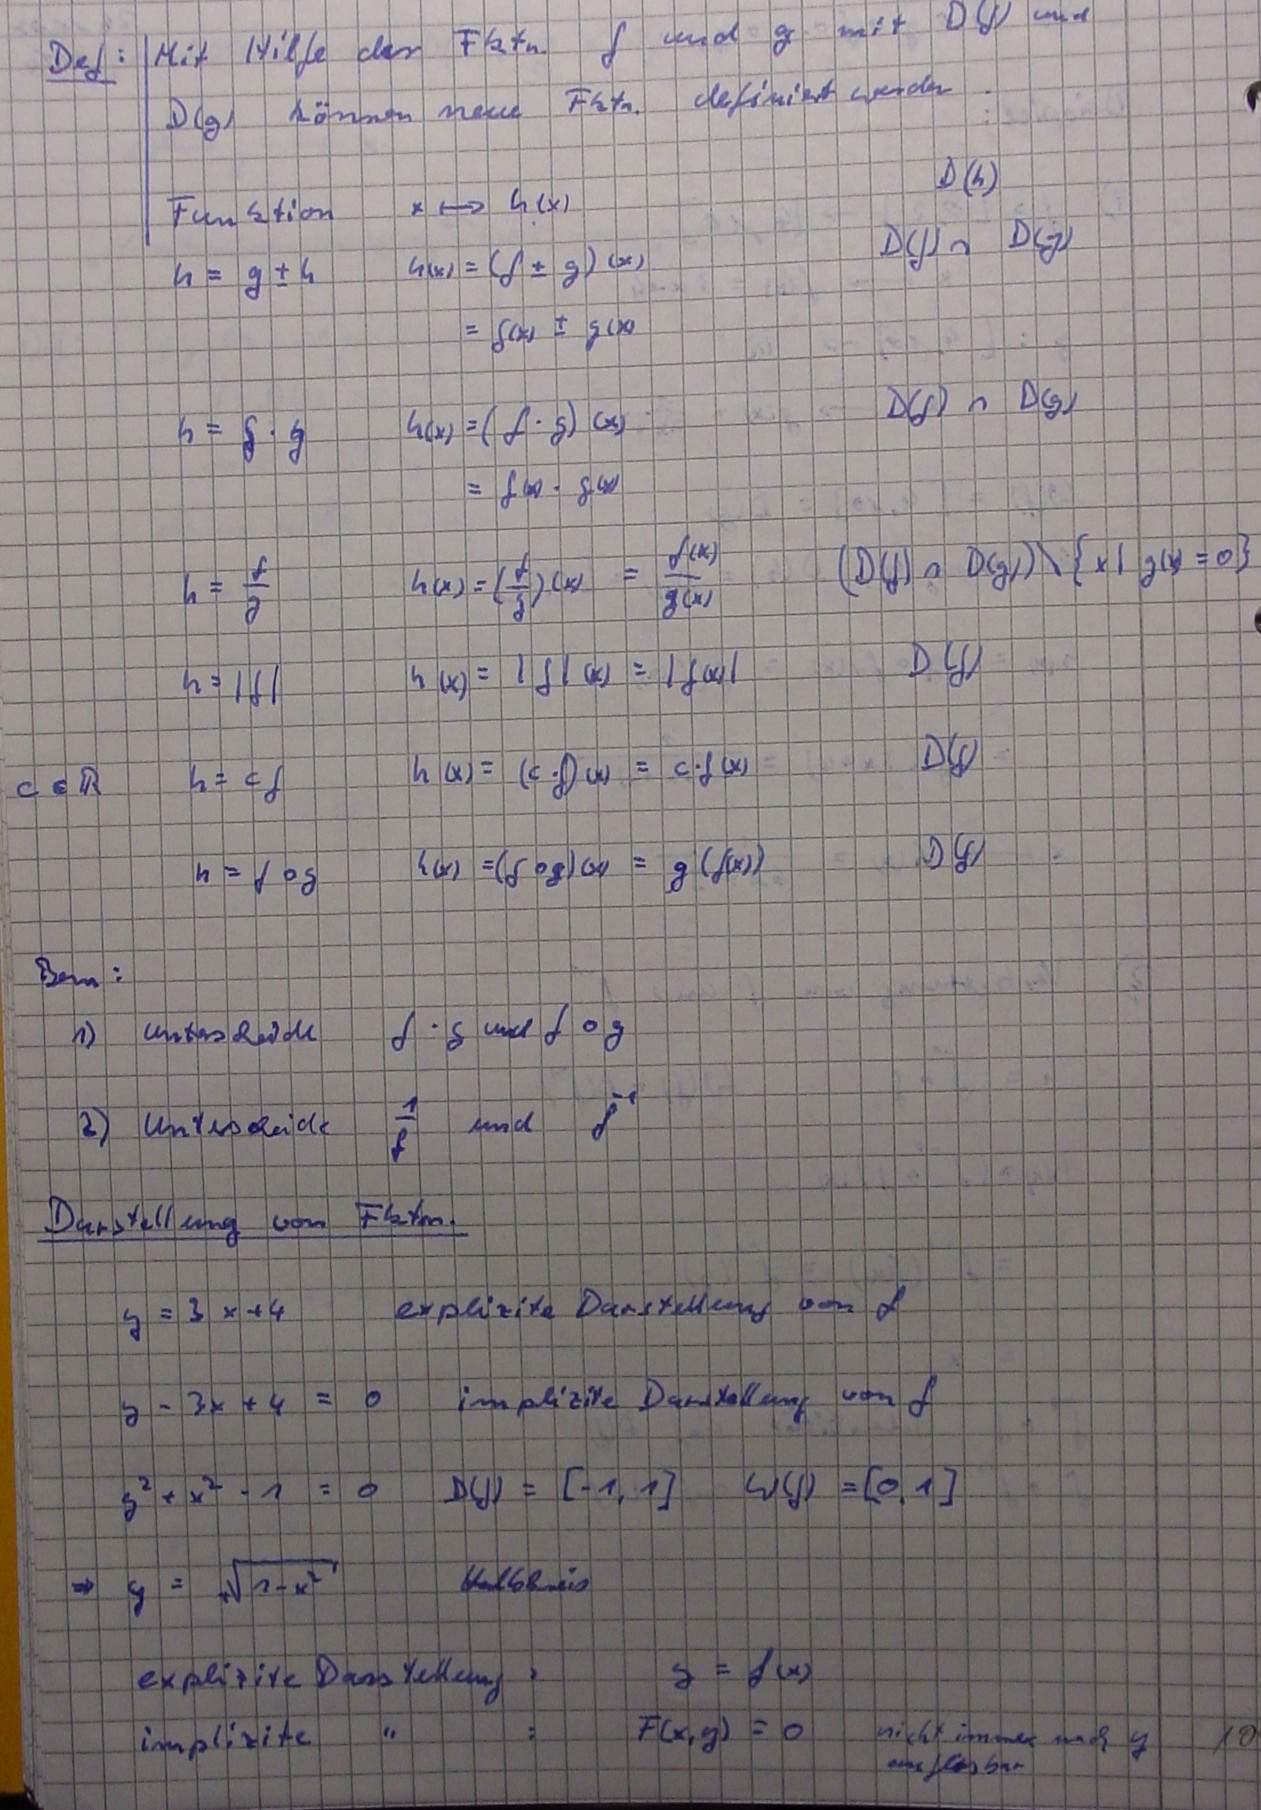 Def: Mit Hilfe der Fktn. f und g mit D(f) und
D(g) können neue Fktn. definiert werden.
D(h)
Funktion x ↦ h(x)
h = g ± h h(x) = (f ± g)(x) D(f) ∩ D(g)
= f(x) ± g(x)
h = f · g h(x) = (f · g)(x) D(f) ∩ D(g)
= f(x) · g(x)
h = f/g h(x) = (f/g)(x) = f(x)/g(x) (D(f) ∩ D(g)) \ {x | g(x) = 0}
h = |f| h(x) = |f|(x) = |f(x)| D(f)
c ∈ ℝ h = cf h(x) = (c·f)(x) = c·f(x) D(f)
h = f∘g h(x) = (f∘g)(x) = g(f(x)) D(f)
Bem:
1) unterscheide f · g und f ∘ g
2) Unterscheide 1/f und f⁻¹
Darstellung von Fktn.
y = 3x+4 explizite Darstellung von f
y - 3x + 4 = 0 implizite Darstellung von f
y² + x² - 1 = 0 D(f) = [-1, 1] W(f) = [0, 1]
⇒ y = +√(1-x²) Halbkreis
explizite Darstellung: y = f(x)
implizite " : F(x,y) = 0 nicht immer nach y 10
auflösbar